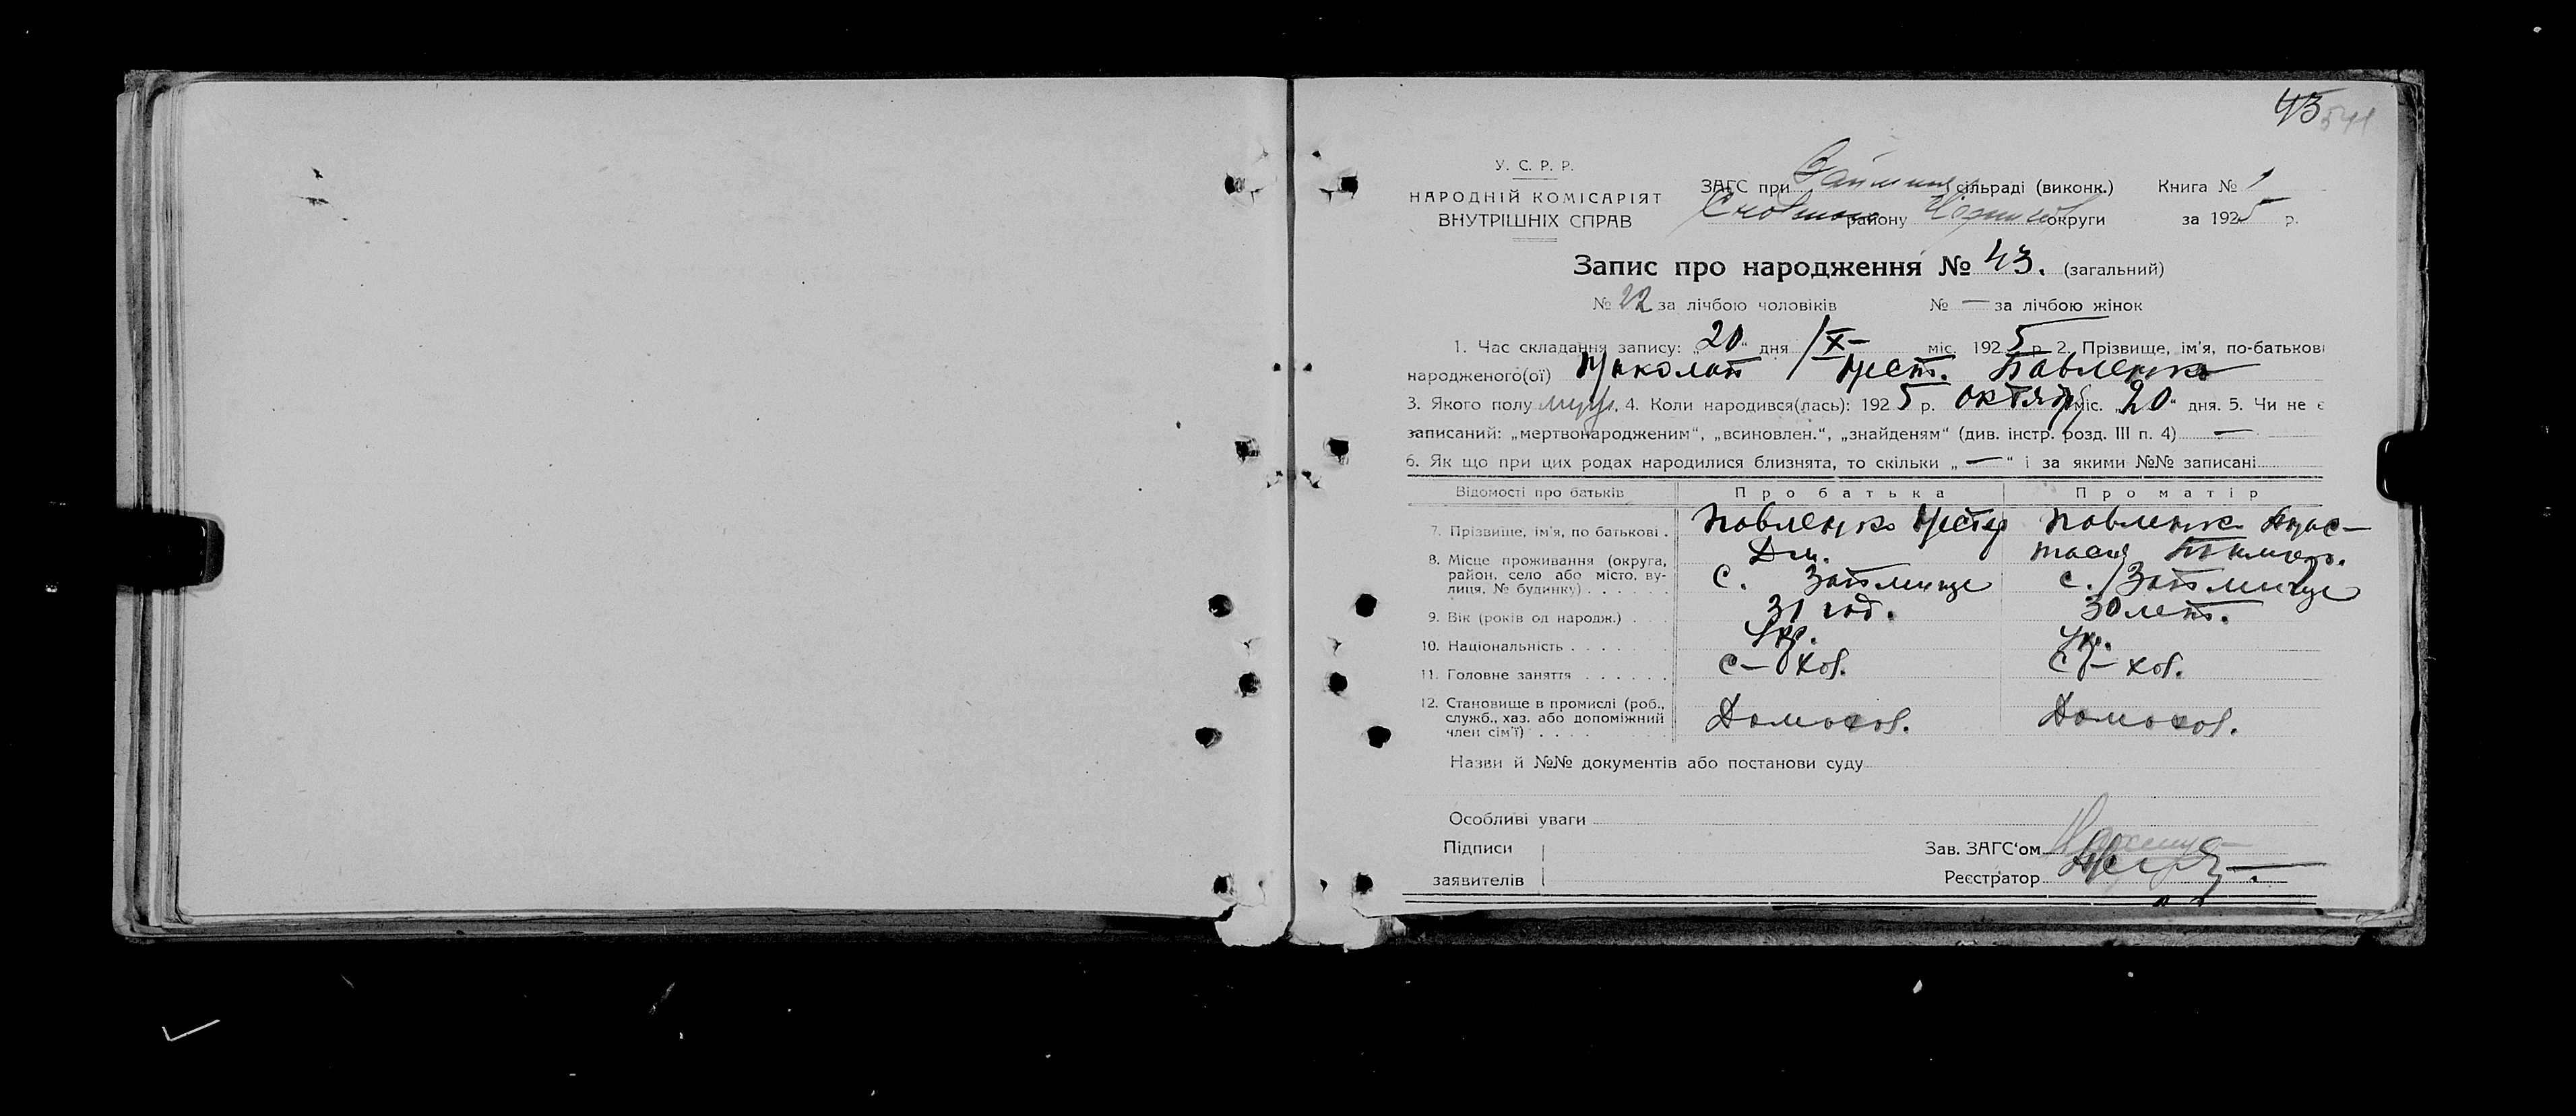 43 541
У. С. Р. Р.
НАРОДНІЙ КОМІСАРІЯТ
ВНУТРІШНІХ СПРАВ
ЗАГС при сільраді (виконк.) Книга № 1
району округи за 1925 р.
Запис про народження № 43. (загальний)
№ 22 за лічбою чоловіків № — за лічбою жінок
1. Час складання запису: „20“ дня X міс. 1925 р. 2. Прізвище, ім’я, по-батькові
народженого(ої) Николай Нест. Павленко
3. Якого полу муж. 4. Коли народився(лась): 1925 р. октяб міс. „20“ дня. 5. Чи не є
записаний: „мертвонародженим“, „всиновлен.“, „знайденям“ (див. інстр. розд. III п. 4) —
6. Як що при цих родах народилися близнята, то скільки „—“ і за якими №№ записані
Відомості про батьків Про батька Про матір
7. Прізвище, ім’я, по батькові . Павленко Нестер Дм. Павленко Анас-
тасия
8. Місце проживання (округа,
район, село або місто, ву-
лиця, № будинку) . . . . . . с. Займище с. Займище
9. Вік (років од народж.) . . 31 год. 30 лет.
10. Національність . . . . . . Укр. Укр.
11. Головне заняття . . . . . . с-хоз. с-хоз.
12. Становище в промислі (роб.,
служб., хаз. або допоміжний
член сім’ї) . . . . Домохоз. Домохоз.
Назви й №№ документів або постанови суду
Особливі уваги
Підписи
заявителів
Зав. ЗАГС‘ом
Реєстратор